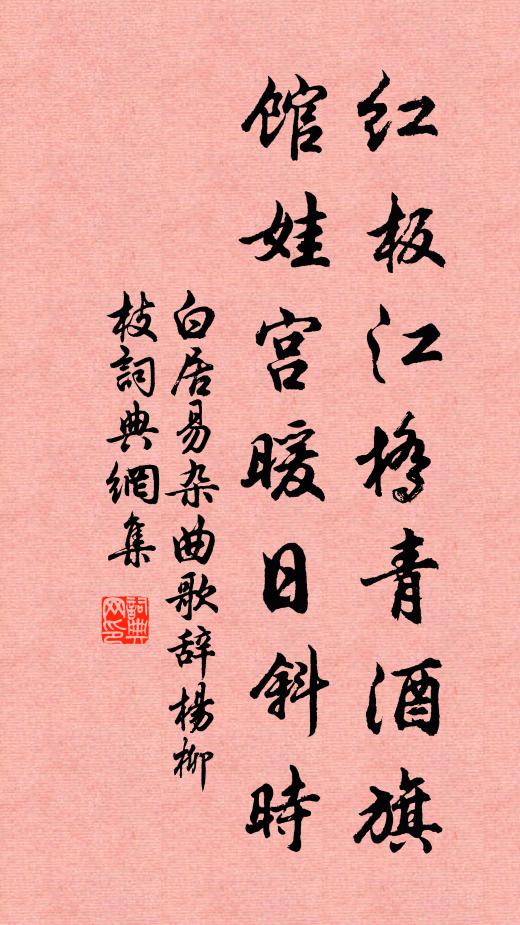 红板江桥青酒旗
馆娃宫暖日斜时
白居易杂曲歌辞杨柳
枝詞典網集
詞典
网印